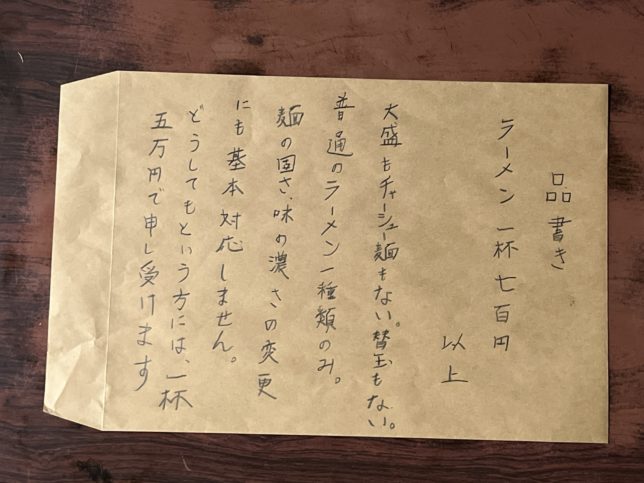 品書き
ラーメン 一杯七百円
以上
大盛もチャーシュー麺もない。替玉もない。
普通のラーメン一種類のみ。
麺の固さ、味の濃さの変更
にも基本対応しません。
どうしてもという方には、一杯
五万円で申し受けます